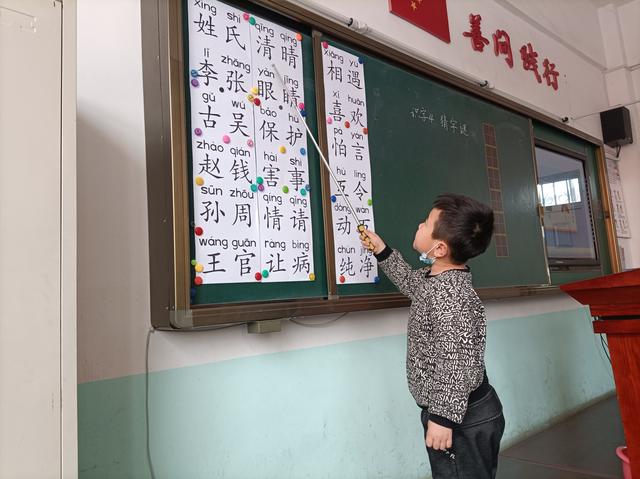 善问 践行
xìng shì
姓氏
lǐ zhāng
李张
gǔ wú
古吴
zhào qián
赵钱
sūn zhōu
孙周
wáng guān
王官
qīng qíng
清晴
yǎn jīng
眼睛
bǎo hù
保护
hài shì
害事
qíng qǐng
情请
ràng bìng
让病
xiāng yù
相遇
xǐ huān
喜欢
pà yán
怕言
hù lìng
互令
dòng wàn
动万
chún jìng
纯净
识字4 猜字谜